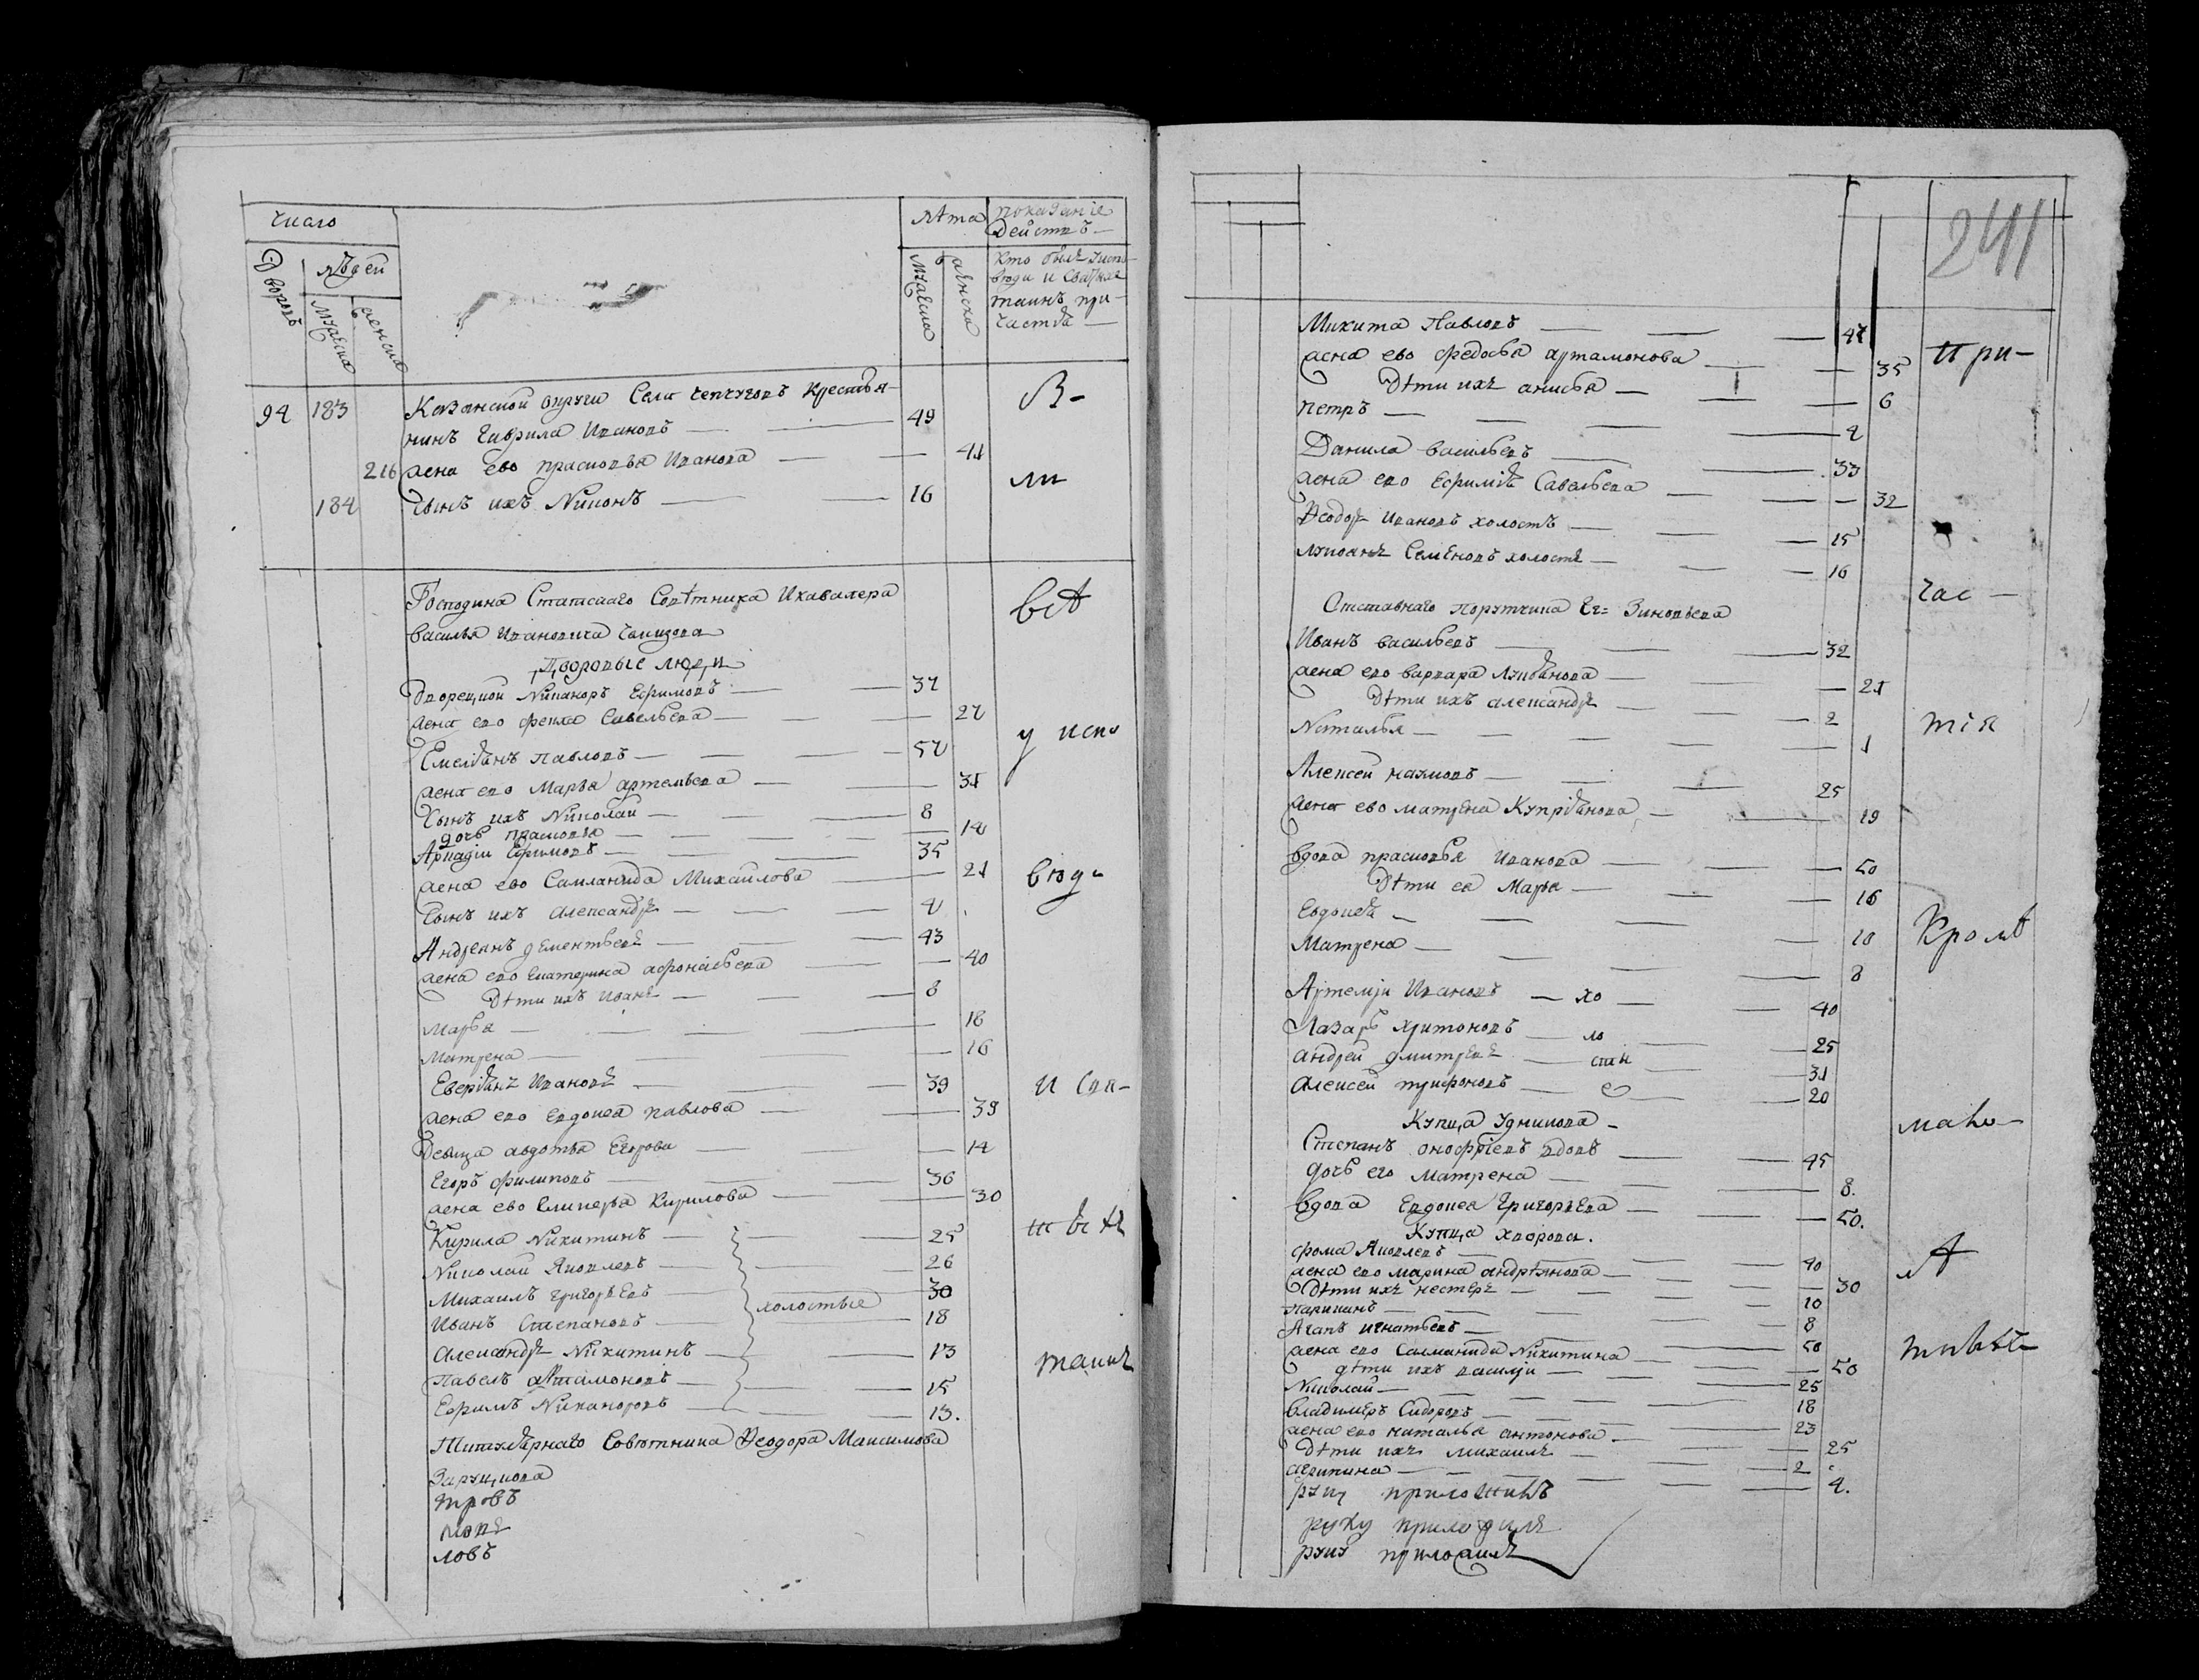 число
лѣта
показанiе
действъ
Дворовъ
людей
мужеска
женска
мужеска
женска
Кто былъ уиспо-
вѣди и святыхъ
таинъ при-
частiя
94 183 Казанской округи Села чепчуговъ Крестья-
нинъ Гаврила Ивановъ 49
216 жена ево прасковья Иванова 41
184 Сынъ ихъ Никонъ 16
Господина Статскаго Советника Икавалера
василья Ивановича
Дворовые люди
Дворецкой Никаноръ Ефимовъ 37
жена ево фекла Савельева 27
Емелiянъ павловъ 52
жена ево Марья артемьева 31
Сынъ ихъ Николай 8
дочь прасковья 12
Аркадiи Ефимовъ 35
жена ево Саманида Михайлова 21
Сынъ ихъ александръ 2
Андреянъ дементьевъ 43
жена ево екатерина афонасьева 40
Дѣти ихъ иванъ 8
Марья 18
матрена 16
Еверiянъ Ивановъ 39
жена ево евдокея павлова 39
Девица авдотья Егорова 14
Егоръ филиповъ 36
жена ево гликерья Кирилова 30
Кирила Никитинъ 25
Николай Яковлевъ 26
Михаилъ григорьевъ 30
холостые
Иванъ Степановъ 18
александръ Никитинъ 13
павелъ артамоновъ 15
Ефимъ Никаноровъ 13.
Титулярнаго Советника Феодора Максимова
тровъ
ловъ
В-
ли
всѣ
у испо
вѣди
и свя-
тыхъ
таинъ
241
Микита Павловъ 47
жена ево федосья артамонова 35
Дѣти ихъ анисья 6
петръ 2
Данила васильевъ 33
жена ево Ефимiя Савельева 32
Феодоръ Ивановъ холостъ 15
лукьянъ Семеновъ холостъ 16
Отставнаго порутчика Ег= Зиновьева
Иванъ васильевъ 32
жена ево варвара лукiянова 21
Дѣти ихъ александръ 2
Наталья 1
Алексей наумовъ 25
жена ево матрена Купрiянова 19
вдова прасковья иванова 50
Дѣти ея Марья 16
Евдокея 10
Матрена 8
Артемiи Ивановъ — хо 40
Лазарь харитоновъ — ло 25
андрей дмитревъ — сты 31
алексей трифоновъ — е 20
Купца
Степанъ онофрiевъ вдовъ 45
дочь его матрена 8.
вдова Евдокея григорьева 50.
Купца хворова.
фома Яковлевъ 40
жена ево марина андрѣянова 30
Дѣти ихъ нестеръ 10
8
Агапъ игнатьевъ 50
жена ево Саманида Никитина 50
дѣти ихъ василiи 25
Николай 18
владимеръ Сидоровъ 23
жена ево наталья антонова 25
Дѣти ихъ михаилъ 2
агрипина 4.
руку приложилъ
руку приложилъ
руку приложилъ
При-
час-
тiя
Кромѣ
мало
лѣ
тныхъ